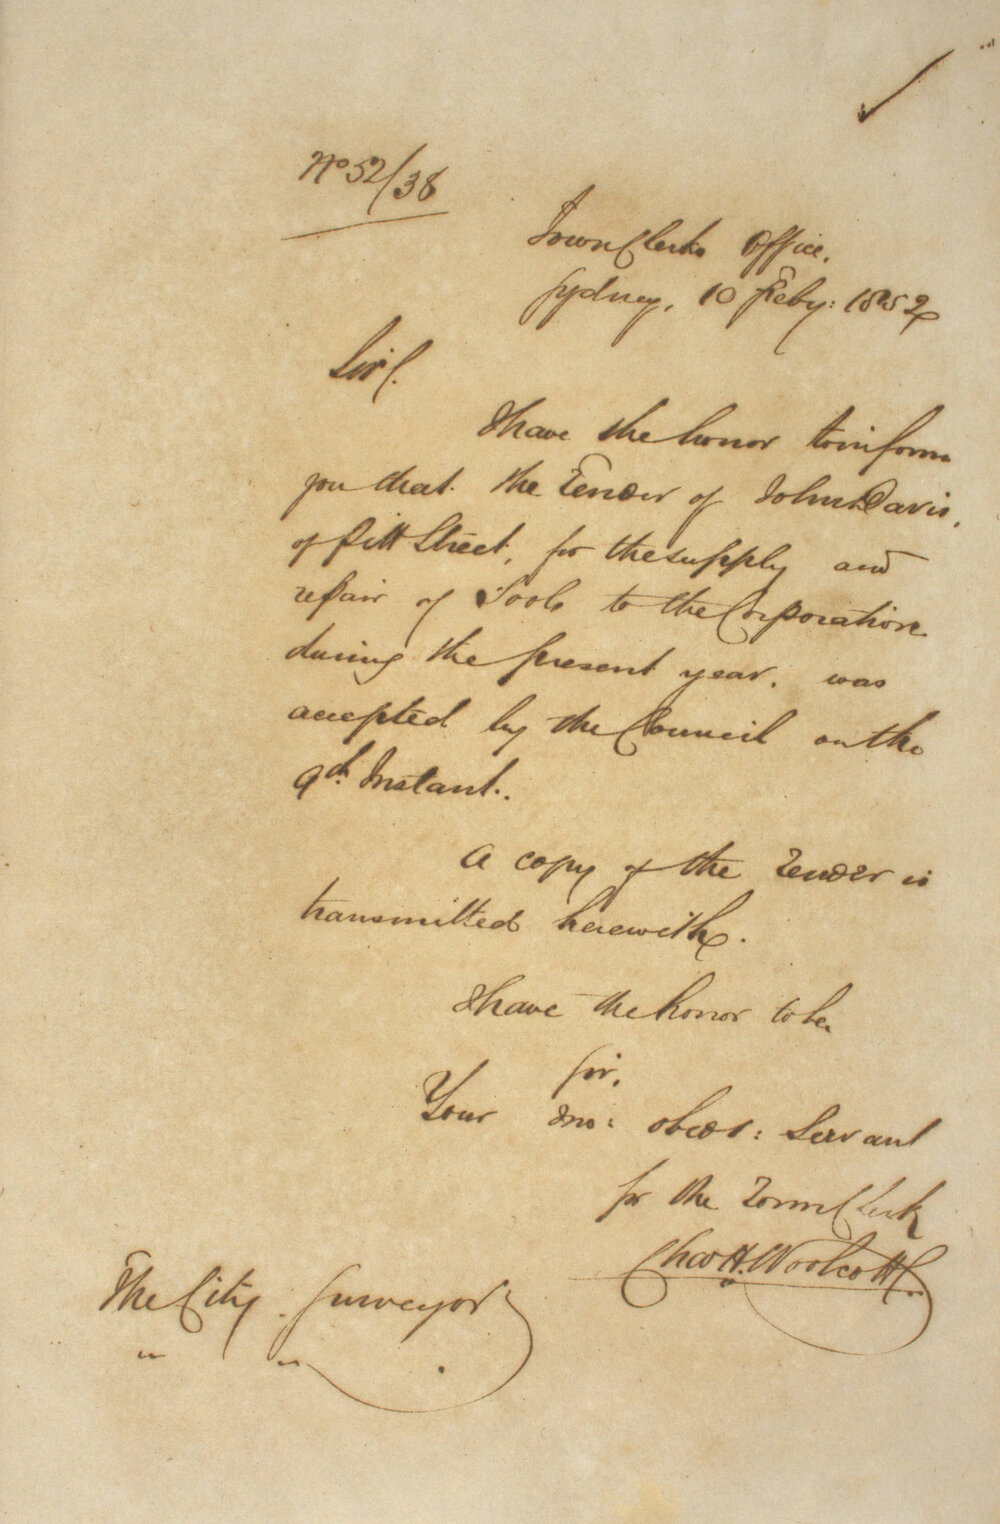 No 52/38
Town Clerks Office,
Sydney, 10 Feby: 1852
Sir,
I have the honor to inform
you that the Tender of John Davis,
of Pitt Street, for the supply and
repair of Tools to the Corporation
during the present year, was
accepted by the Council on the
9th Instant.
A copy of the Tender is
transmitted herewith.
I have the honor to be
Sir,
Your mo: obedt: Servant
for the Town Clerk
Chas H. Woolcott
The City Surveyor
" "